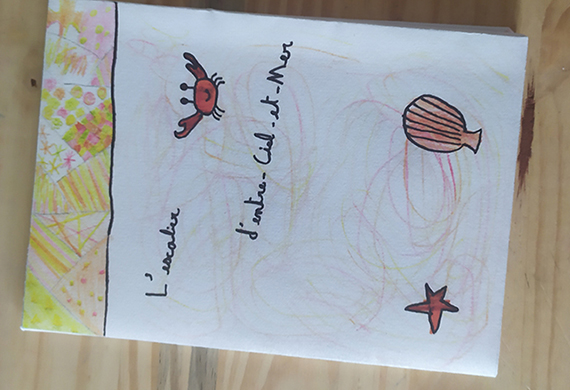 L'escalier
d'entre-Ciel-et-Mer